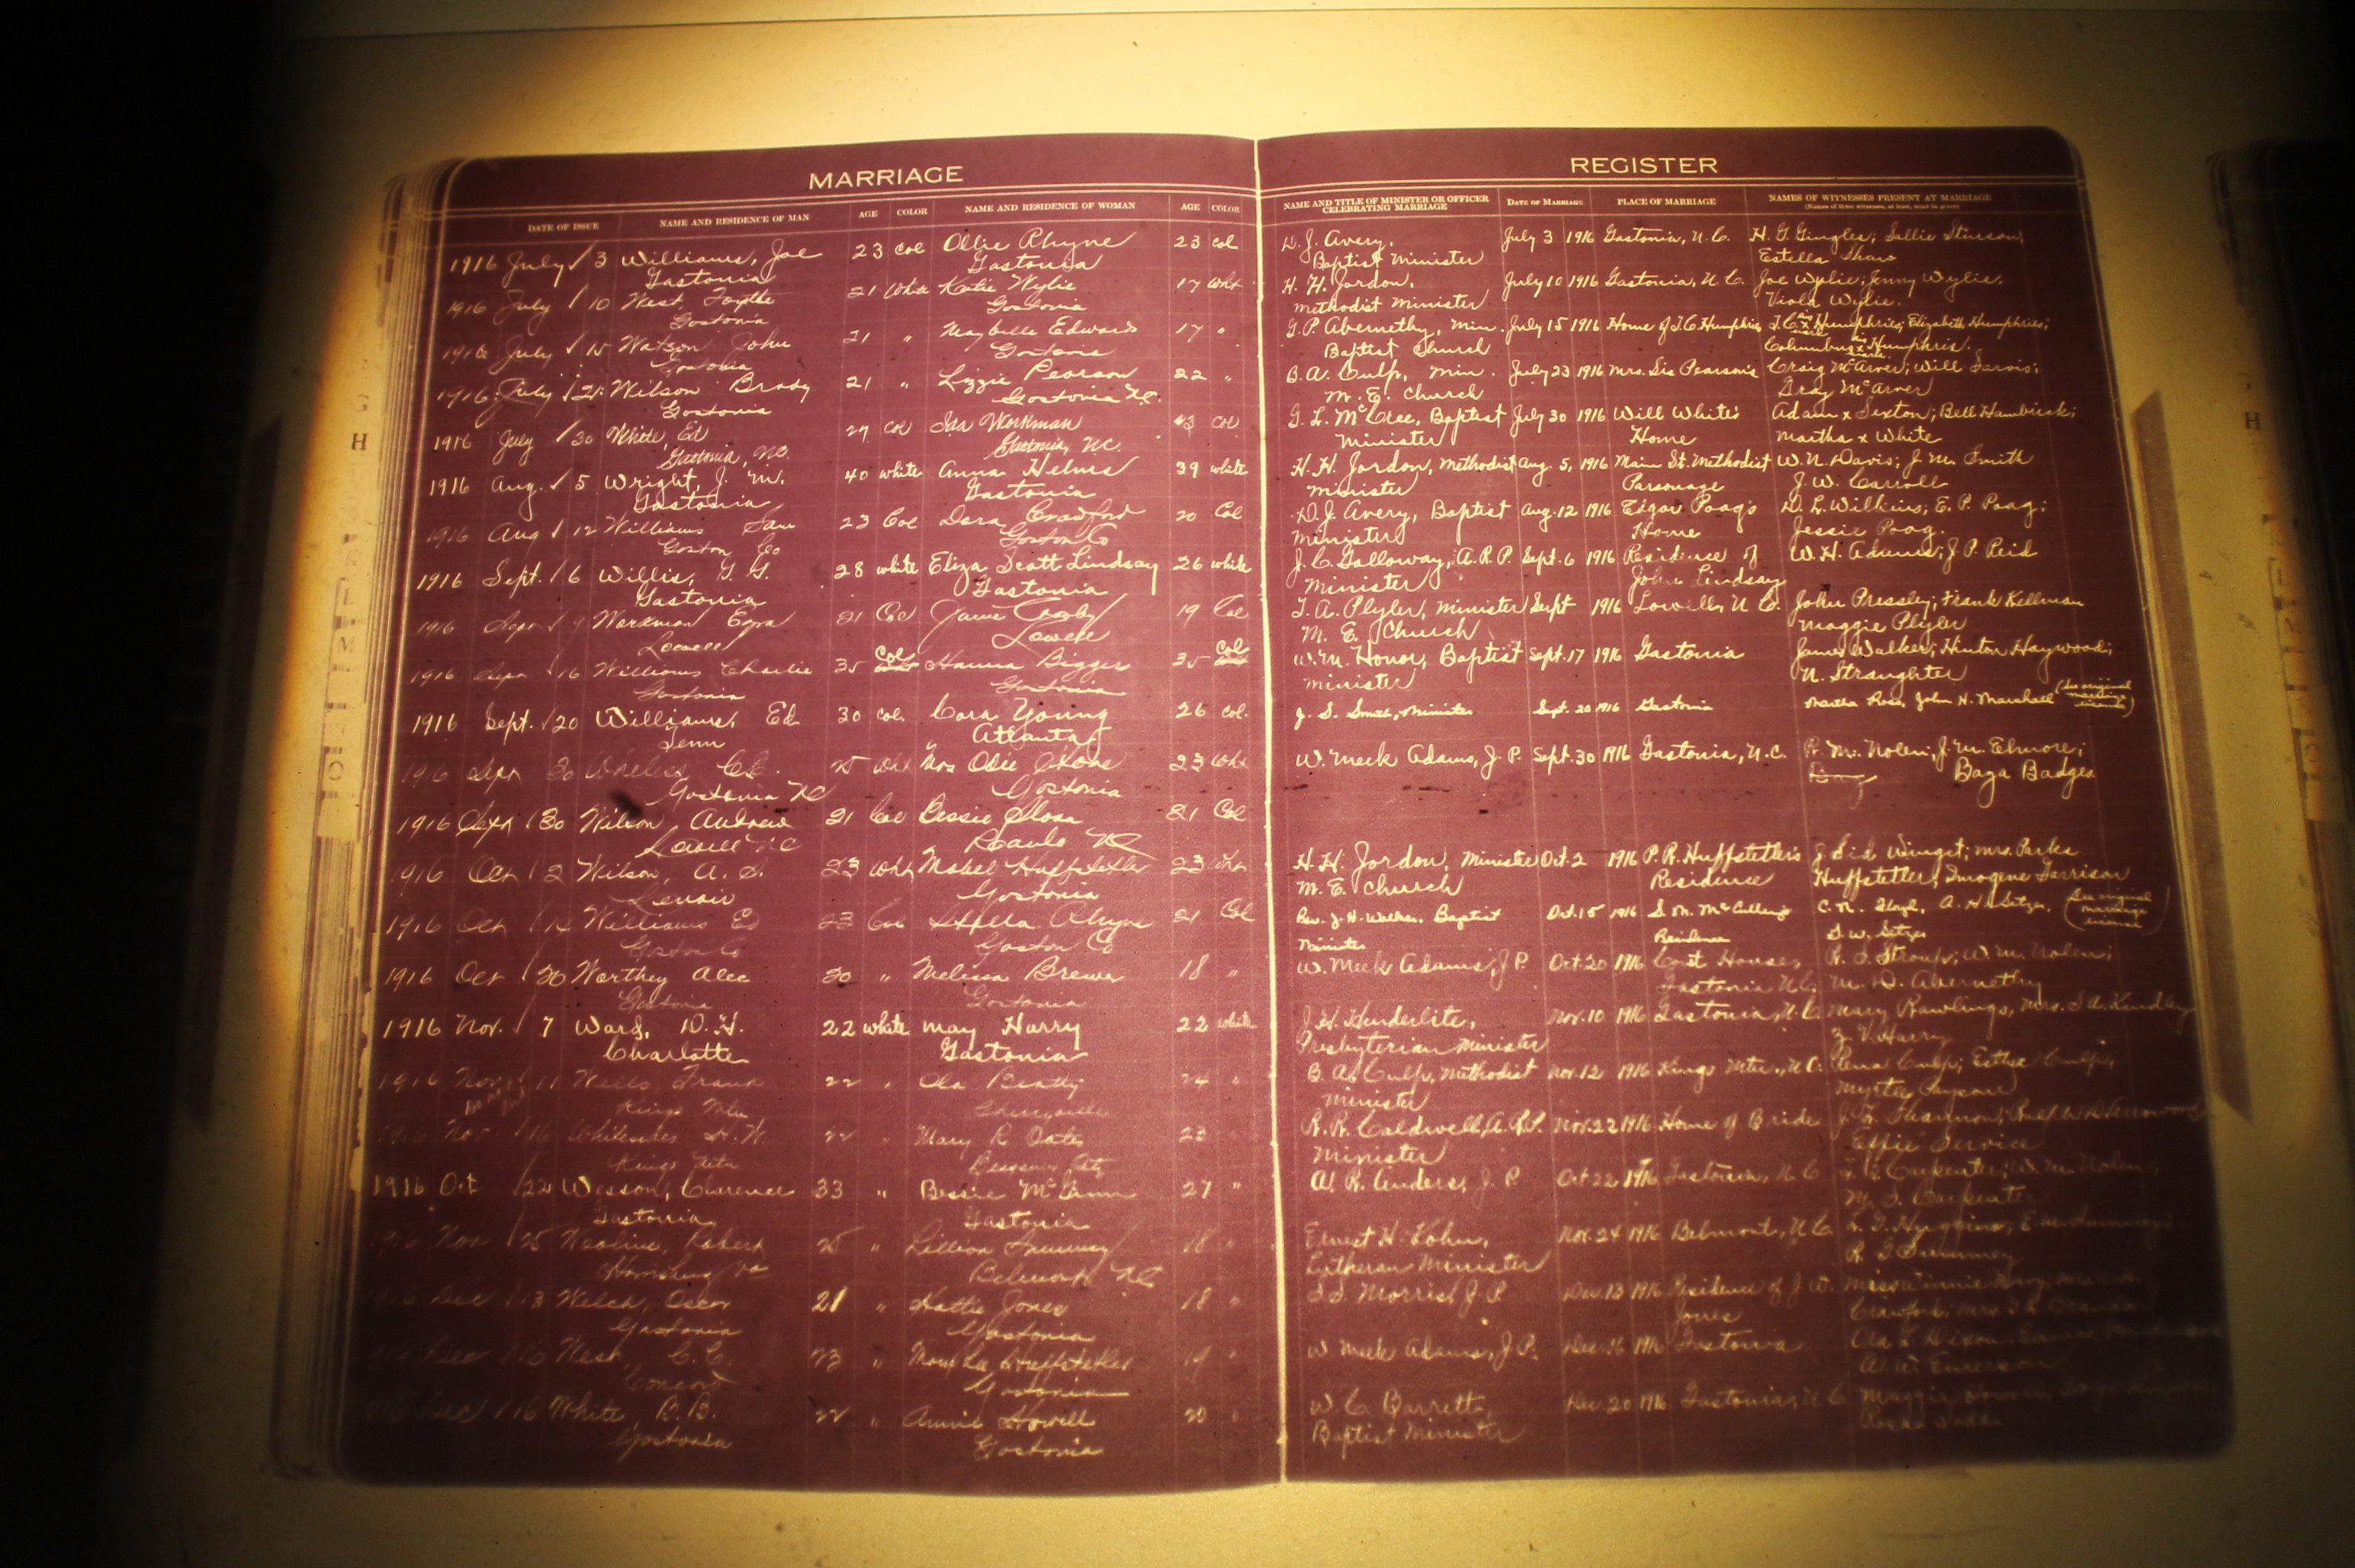 MARRIAGE
REGISTER
DATE OF ISSUE NAME AND RESIDENCE OF MAN AGE COLOR NAME AND RESIDENCE OF WOMAN AGE COLOR
NAME AND TITLE OF MINISTER OR OFFICER CELEBRATING MARRIAGE DATE OF MARRIAGE PLACE OF MARRIAGE NAMES OF WITNESSES PRESENT AT MARRIAGE
(Names of three witnesses, at least, must be given)
1916 July 3 Williams, Joe 23 col Ollie Rhyne 23 col D. J. Avery, July 3 1916 Gastonia, N.C. H. G. Gingles; Sallie
Gastonia Gastonia Baptist Minister Estella Shaw
1916 July 10 West 21 White Katie Wylie 17 Wht H. H. Jordon, July 10 1916 Gastonia, N.C. Joe Wylie; Jenny Wylie.
Gastonia Gastonia Methodist Minister Viola Wylie.
1916 July 15 Watson John 21 " Maybelle Edwards 17 " G. P. Abernethy, Min. July 15 1916 Home of J. C. Humphries J. C. x Humphries; Elizabeth Humphries;
Gastonia Gastonia Baptist Church Columbus x Humphris.
1916 July 21 Wilson Brady 21 " Lizzie Pearson 22 " B. A. Culp, Min. July 23 1916 Mrs. Sis Pearson's Craig McArver; Will Jarvis;
Gastonia Gastonia N.C. M. E. Church Gray McArver
1916 July 30 White, Ed col Ida Workman 43 col G. L. McCree, Baptist July 30 1916 Will White's Adam x Sexton; Bell Hambrick;
Gastonia, N.C. Gastonia, N.C. Minister Home Martha x White
1916 Aug. 5 Wright, J. M. 40 white Anna Helms 39 white H. H. Jordon, Methodist Aug. 5, 1916 Main St. Methodist W. N. Davis; J. M. Smith
Gastonia Gastonia Minister Parsonage J. W. Carroll
1916 Aug 12 Williams Sam 23 Col Dora Crawford 20 Col D. J. Avery, Baptist Aug. 12 1916 Edgar Poag's D. L. Wilkins; E. P. Poag;
Gaston Co Gaston Co Minister Home Jessie Poag.
1916 Sept. 6 Willis, G. G. 28 white Eliza Scott Lindsay 26 white J. C. Galloway, A. R. P. Sept. 6 1916 Residence of W. H. Adams; J. P. Reid
Gastonia Gastonia Minister John Lindsay
1916 Sept 9 Workman Ezra 21 Col Janie Crosby 19 Col T. A. Plyler, Minister Sept 1916 Lowell, N.C. John Pressley; Frank Kellman
Lowell Lowell M. E. Church Maggie Plyler
1916 Sept 16 Williams Charlie 35 Col Hanna Bigger 35 Col W. M. Honor, Baptist Sept. 17 1916 Gastonia James Walker; Hinton Haywood;
Gastonia Gastonia Minister N. Straughter
1916 Sept. 20 Williams, Ed 30 col. Cora Young 26 col. J. S. Smith, Minister Sept. 20 1916 Gastonia Martha Ross, John H. Marshall (See original marriage license)
Tenn Atlanta
1916 Sept 30 25 Wht Mrs Osie 23 Wht W. Meek Adams, J. P. Sept. 30 1916 Gastonia, N.C. R. M. Nolen; J. M. Elmore;
Gastonia NC Gastonia Baza Badges.
1916 Sept 30 Wilson, Andrew 21 Col Bessie Sloan 21 Col
Lowell NC
1916 Oct 2 Wilson, A. S. 23 Wht Mabel Huffstetler 23 Wht H. H. Jordon, Minister Oct. 2 1916 P. R. Huffstetler's J. Sid Winget; Mrs. Parks
Lenoir Gastonia M. E. Church Residence Huffstetler; Imogene Garrison
1916 Oct 14 Williams Ed 23 Col Stella Rhyne 21 Col Rev. J. H. Walker, Baptist Oct. 15 1916 S. M. McCulley's C. N. Lloyd, A. H. Setzer, (See original marriage license)
Gaston Co Gaston Co Minister Residence S. W. Setzer
1916 Oct 20 Worthey Alec 20 " Melissa Brewer 18 " W. Meek Adams, J. P. Oct. 20 1916 Court House, R. S. Stroup; W. M. Nolen;
Gastonia Gastonia Gastonia N.C. M. D. Abernethy
1916 Nov. 7 Ward, D. H. 22 white May Harry 22 white J. H. Henderlite, Nov. 10 1916 Gastonia, N.C. Mary Rawlings, Mrs. S. A. Kindley
Charlotte Gastonia Presbyterian Minister Z. V. Harry
1916 Nov 11 Wells, Frank 22 " Ola Beatty 24 " B. A. Culp, Methodist Nov. 12 1916 Kings Mtn., N.C. Rena Culp; Esther Culp,
Kings Mtn Cherryville Minister Myrtle
1916 Nov. 16 Whitesides 22 " Mary R Oates 23 R. R. Caldwell, A.R.P. Nov. 22 1916 Home of Bride
Kings Mtn Bessemer City Minister Effie Service
1916 Oct 22 Wesson, Clarence 33 " Bessie McGinn 27 " A. R. Anders, J. P. Oct 22 1916 Gastonia, N.C. Carpenter; W. M. Nolen;
Gastonia Gastonia M. S. Carpenter
1916 Nov 25 Robert 25 " Lillian Summey 18 " Ernest H. Kohn, Nov. 24 1916 Belmont, N.C. Huggins; E. M. Summey;
Belmont N.C. Lutheran Minister R. G. Summey
1916 Dec 13 Welch, Oscar 21 " Hattie Jones 18 " S. S. Morris, J. P. Dec. 13 1916 Residence of J. W. Miss Minnie
Gastonia Gastonia Jones Crawford; Mrs.
Dec 16 West, C. C. 23 " Huffstetler 19 " W. Meek Adams, J. P. Dec. 16 1916 Gastonia Dixon;
Concord Gastonia Emerson
Dec 16 White, B. B. 22 " Annie Howell 20 " W. C. Barrett, Dec. 20 1916 Gastonia, N.C. Maggie
Gastonia Gastonia Baptist Minister
H
M
O